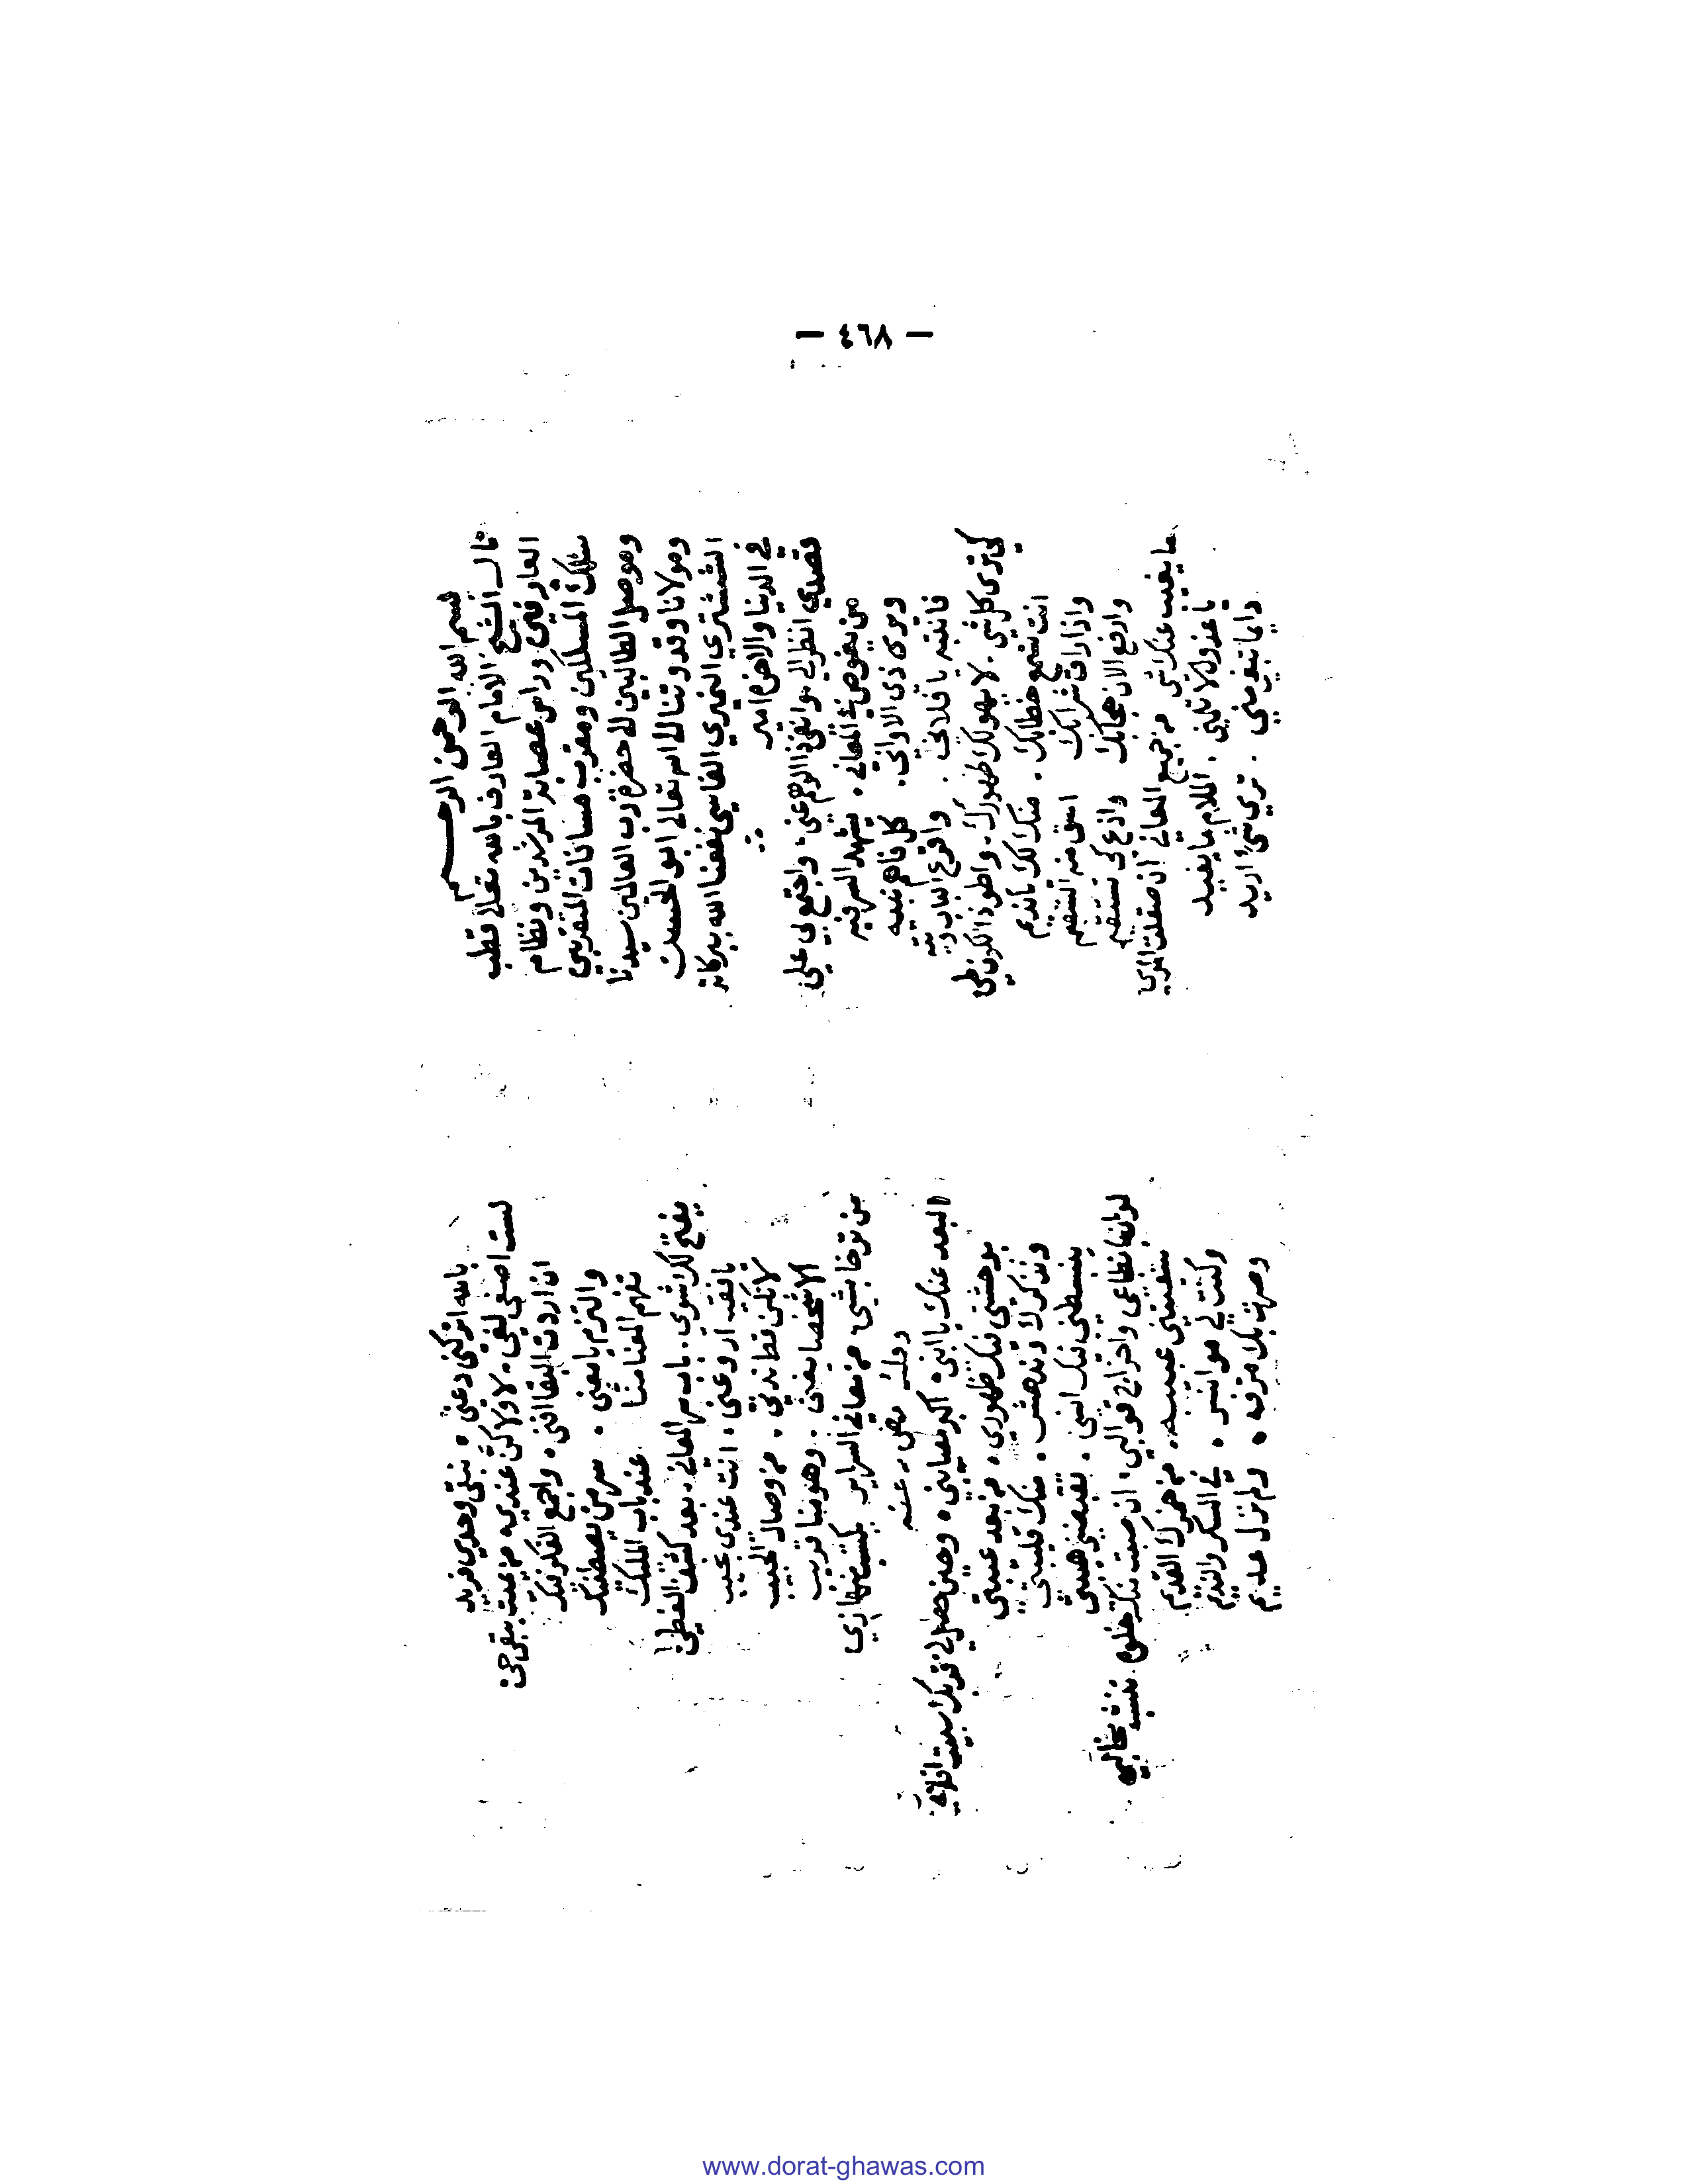 — ٤٦٨ —
بسم الله الرحمن الرحيم
قال الشيخ الامام العارف بالله تعالى قطب
العارفين وراس عصابة المرشدين ونظام
سلك المسلكين ومقرب مسافات المتقربين
وموصل الطالبين الى حضرة رب العالمين سيدنا
ومولانا وقدوتنا الى الله تعالى ابو الحسن
الششتري النميري الفاسي نفعنا الله ببركاته
في الدنيا والاخرة امين
قصدي انظر لي بو انفي ذا الوهم عني، واجتمع بي علي
من يغوص في المعاني . يشهد السر فيه
ويرى ذي الاواني . كل فاهم نبيه
فانتبه يا فلاني . واقرع الباب
كي ترى كل شي . لا يهولك ظهورك . واطو ذا الكون طي
انت تسمع خطابك . منك لك يا نديم
واذا راق شرابك اسق منه السقيم
وارفع الان حجابك واذع كي تستقيم
ما يغيب عنك شي من جميع المعاني ان صقلت المري
يا عذولي لا تلمني . الملام ما يفيد
دايما تبغو مني . تري شي اريد
بالله اتركني دعني . نبقى وحدي فريد
لست اصغي لغي . لا ولا كن عندي . من يمت يبقى حي
ان اردت البقا افنى . واجمع الفكر فيك
والتزم يا معنى . سر من يصطفيك
تفهم المعنا منا عند باب المليك
يفتح لك شوي . باب سر المعاني . بعد كشف الغطي
يا فقيه اروعني . انت عندي عجيب
لا تكن قط ندني . من وصال الحبيب
الا شخصا يفنى . وهو منا قريب
من توخا بشي . من معاني السراير يكتسب منها زي
وله رضي الله عنه
البعد عنك يا ابني . اكبر مصايبي . وحين حصل لي قربك سيبت اقلامي
يوحشني فيك ظهوري . من بعد غيبتي
ونذكرك وندهش . منك قليبتي
يبسطني فيك انسي . تقبضني هيبتي
لولنا انطباعي واخراج قوالبي . ان صفت فيك خلوه .
سقيتني عبيسه . من خمرك القديم
وكنت لي موانس . في السكر والنديم
وصرت بك مرفه . ولم نزل عديم
www.dorat-ghawas.com